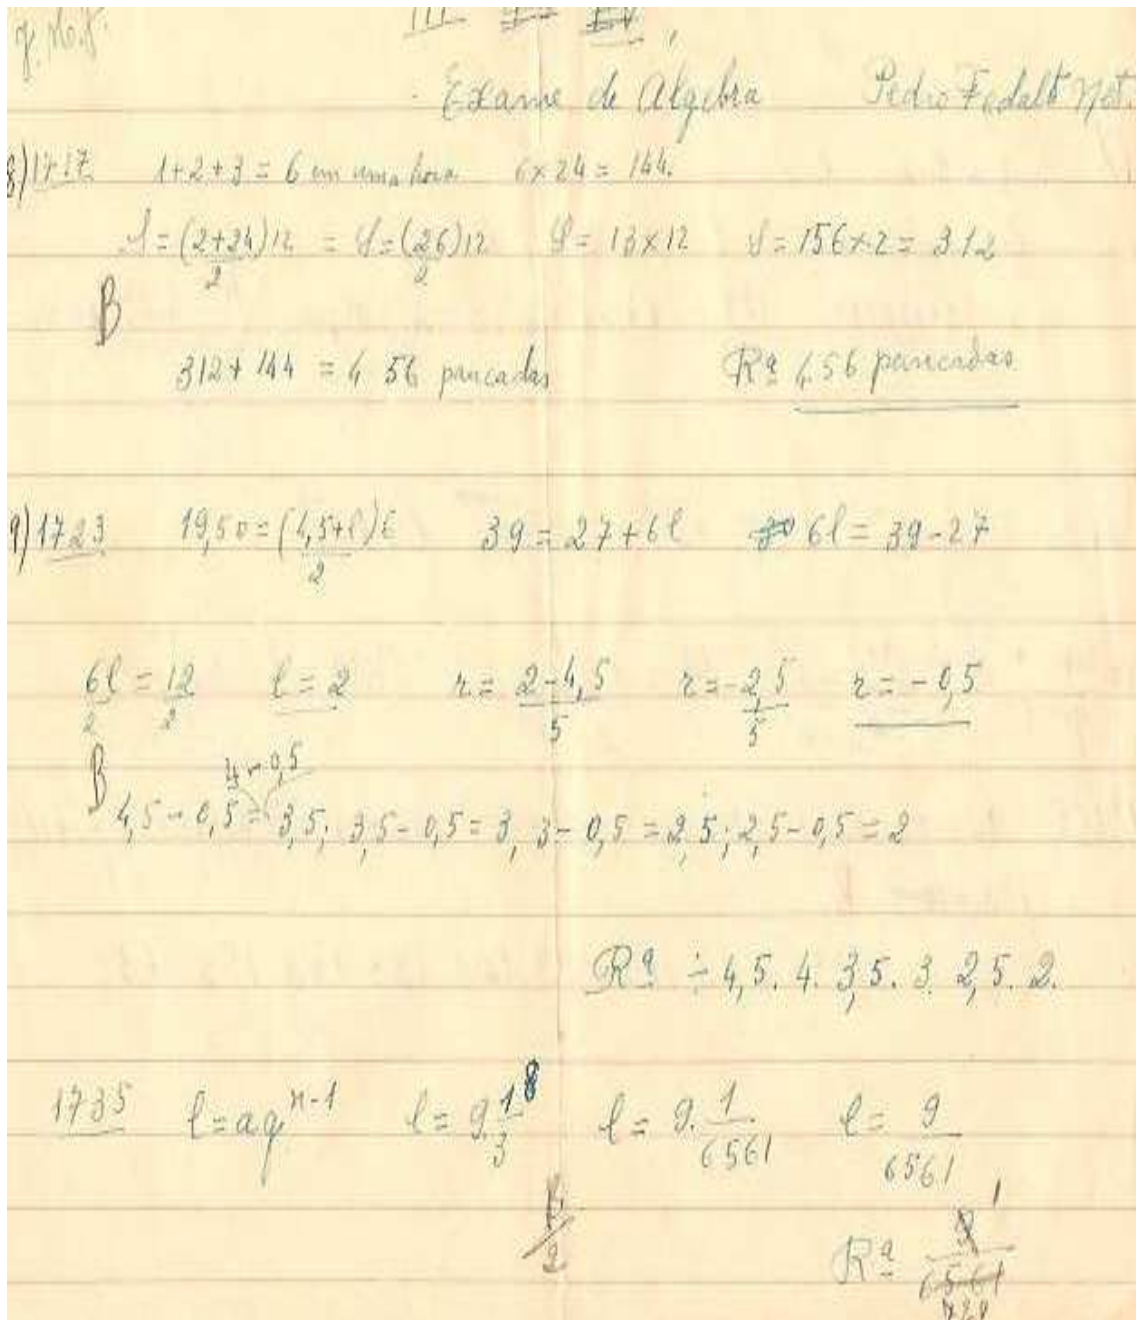 J. M. J.
III
Exame de Algebra Pedro Fedalto
8) 1717 1+2+3 = 6 em uma hora 6 x 24 = 144.
S = (2+24)12/2 = S = (26)12/2 S = 13 x 12 S = 156 x 2 = 312
B
312 + 144 = 456 pancadas Rª 456 pancadas
9) 1723 19,50 = (4,5+l)6/2 39 = 27 + 6l 6l = 39 - 27
6l/2 = 12/2 l = 2 r = 2-4,5/5 r = -2,5/5 r = -0,5
B
4 - 0,5
4,5 - 0,5 = 3,5; 3,5 - 0,5 = 3, 3 - 0,5 = 2,5; 2,5 - 0,5 = 2
Rª ÷ 4,5. 4. 3,5. 3. 2,5. 2.
1735 l = aq^n-1 l = 9.1/3^8 l = 9.1/6561 l = 9/6561
B/2
1
Rª 9/6561
729